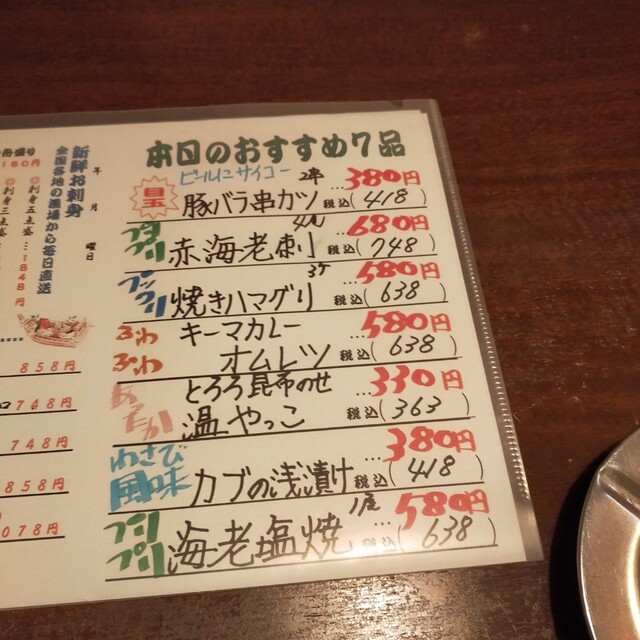 本日のおすすめ7品
ビールにサイコー
目玉 豚バラ串カツ 2本 …380円 税込(418)
赤海老刺 …680円 税込(748)
プックリ 焼きハマグリ 3ケ …580円 税込(638)
ふわふわ キーマカレーオムレツ …580円 税込(638)
あったか とろろ昆布のせ
温やっこ …330円 税込(363)
わさび風味 カブの浅漬け …380円 税込(418)
プリプリ 海老塩焼 …580円 税込(638)
年 月 曜日
新鮮お刺身
全国各地の漁場から毎日直送
◎刺身五点盛 …1848円
◎刺身三点盛
舟盛り
180円
858円
748円
748円
858円
078円